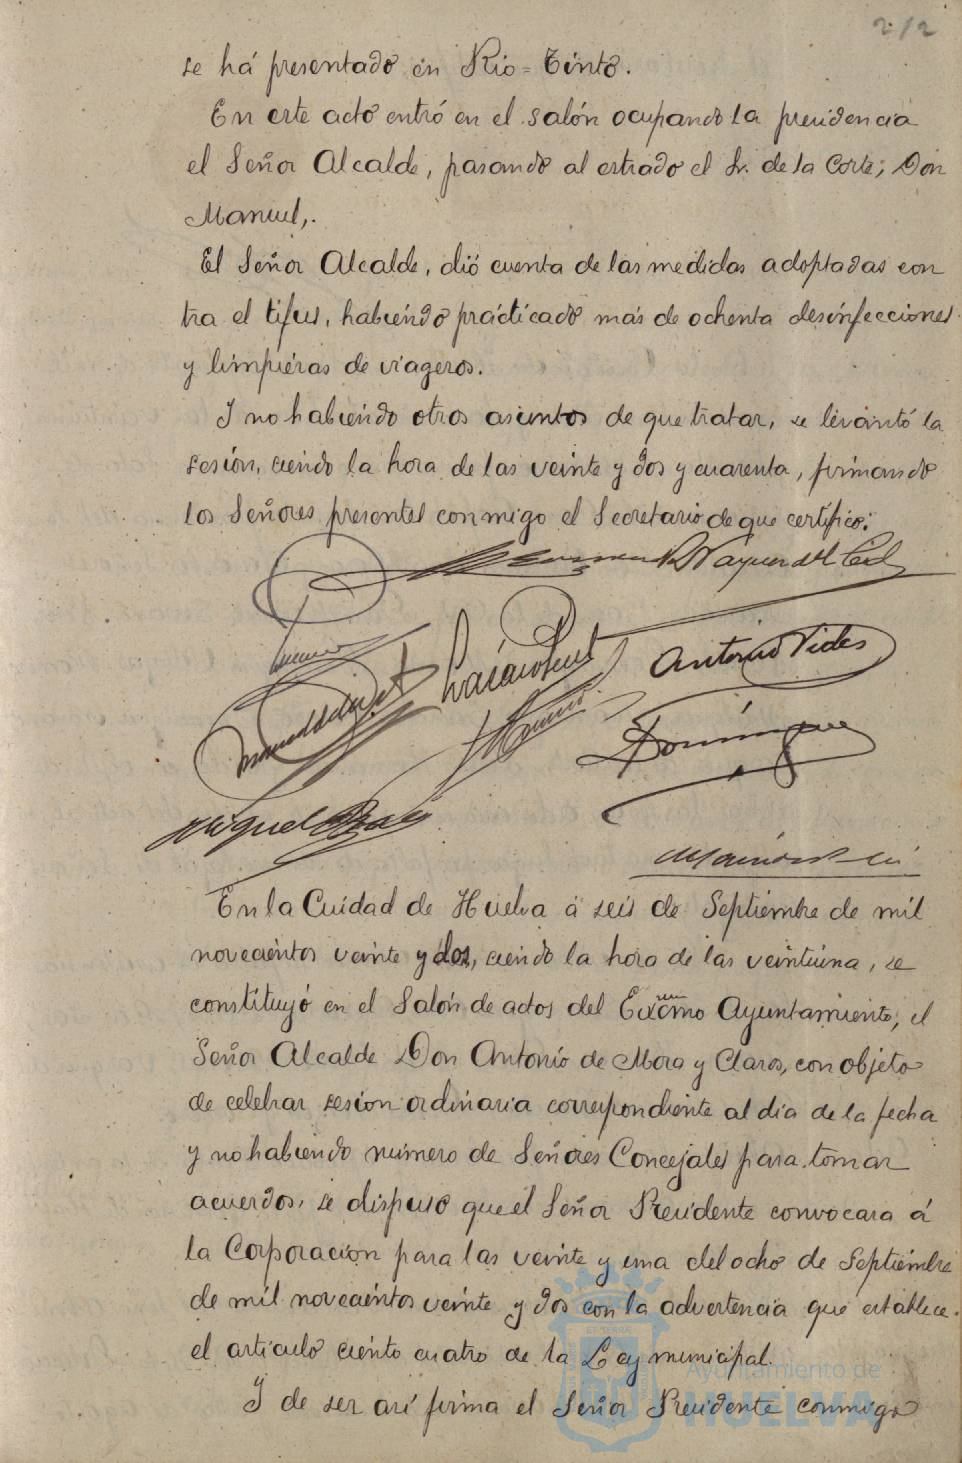 212
se há presentado en Rio=Tinto.
En este acto entró en el salón ocupando la presidencia
el Señor Alcalde, pasando al estrado el Sr. de la Corte; Don
Manuel,.
El Señor Alcalde, dió cuenta de las medidas adoptadas con
tra el tifus, habiendo prácticado más de ochenta desinfecciones
y limpiezas de viageros.
Y no habiendo otros asuntos de que tratar, se levantó la
sesión, ciendo la hora de las veinte y dos y cuarenta, firmando
los Señores presentes conmigo el Secretario de que certifico:
Antonio Vides
Domínguez
Miguel
En la Cuidad de Huelva á seis de Septiembre de mil
novecientos veinte y dos, ciendo la hora de las veintiuna, se
constituyó en el Salón de actos del Excmo Ayuntamiento, el
Señor Alcalde Don Antonio de Mora y Claros, con objeto
de celebrar sesion ordinaria correspondiente al dia de la fecha
y no habiendo número de Señores Concejales para tomar
acuerdos, se dispuso que el Señor Presidente convocara á
la Corporación para las veinte y una del ocho de Septiembre
de mil novecientos veinte y dos con la advertencia que establece
el articulo ciento cuatro de la Ley municipal.
Y de ser asi firma el Señor Presidente conmigo
Ayuntamiento de
HUELVA